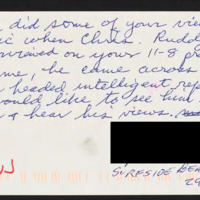 did some of your view
ic when Chris. Rudd
erviewed on your 11-8 pr
me, he came across
r headed intelligent rep
ould like to see him
& hear his views.
SURFSIDE BEA
29